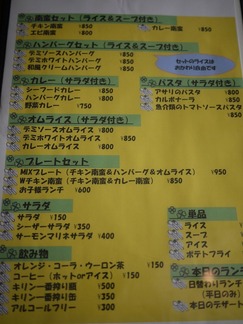 南蛮セット（ライス＆スープ付き）
チキン南蛮 ¥850
カレー南蛮 ¥850
エビ南蛮 ¥800
ハンバーグセット（ライス＆スープ付き）
デミソースハンバーグ ¥850
デミホワイトハンバーグ ¥850
和風クリームハンバーグ ¥850
セットのライスは
おかわり自由です
カレー（サラダ付き）
シーフードカレー ¥850
ハンバーグカレー ¥800
野菜カレー ¥750
パスタ（サラダ付き）
アサリのパスタ ¥800
カルボナーラ ¥850
魚介類のトマトソースパスタ ¥850
オムライス（サラダ付き）
デミソースオムライス ¥800
デミホワイトオムライス ¥800
カレーオムライス ¥800
プレートセット
MIXプレート（チキン南蛮＆ハンバーグ＆オムライス） ¥950
Wチキン南蛮（チキン南蛮＆カレー南蛮） ¥850
お子様ランチ ¥600
サラダ
サラダ ¥150
シーザーサラダ ¥350
サーモンマリネサラダ ¥400
単品
ライス
スープ
アイス
ポテトフライ
飲み物
オレンジ・コーラ・ウーロン茶 ¥150
コーヒー（ホットorアイス） ¥150
キリン一番搾り瓶 ¥500
キリン一番搾り缶 ¥350
アルコールフリー ¥300
本日のラン
日替わりランチ
（平日のみ）
本日のデザート